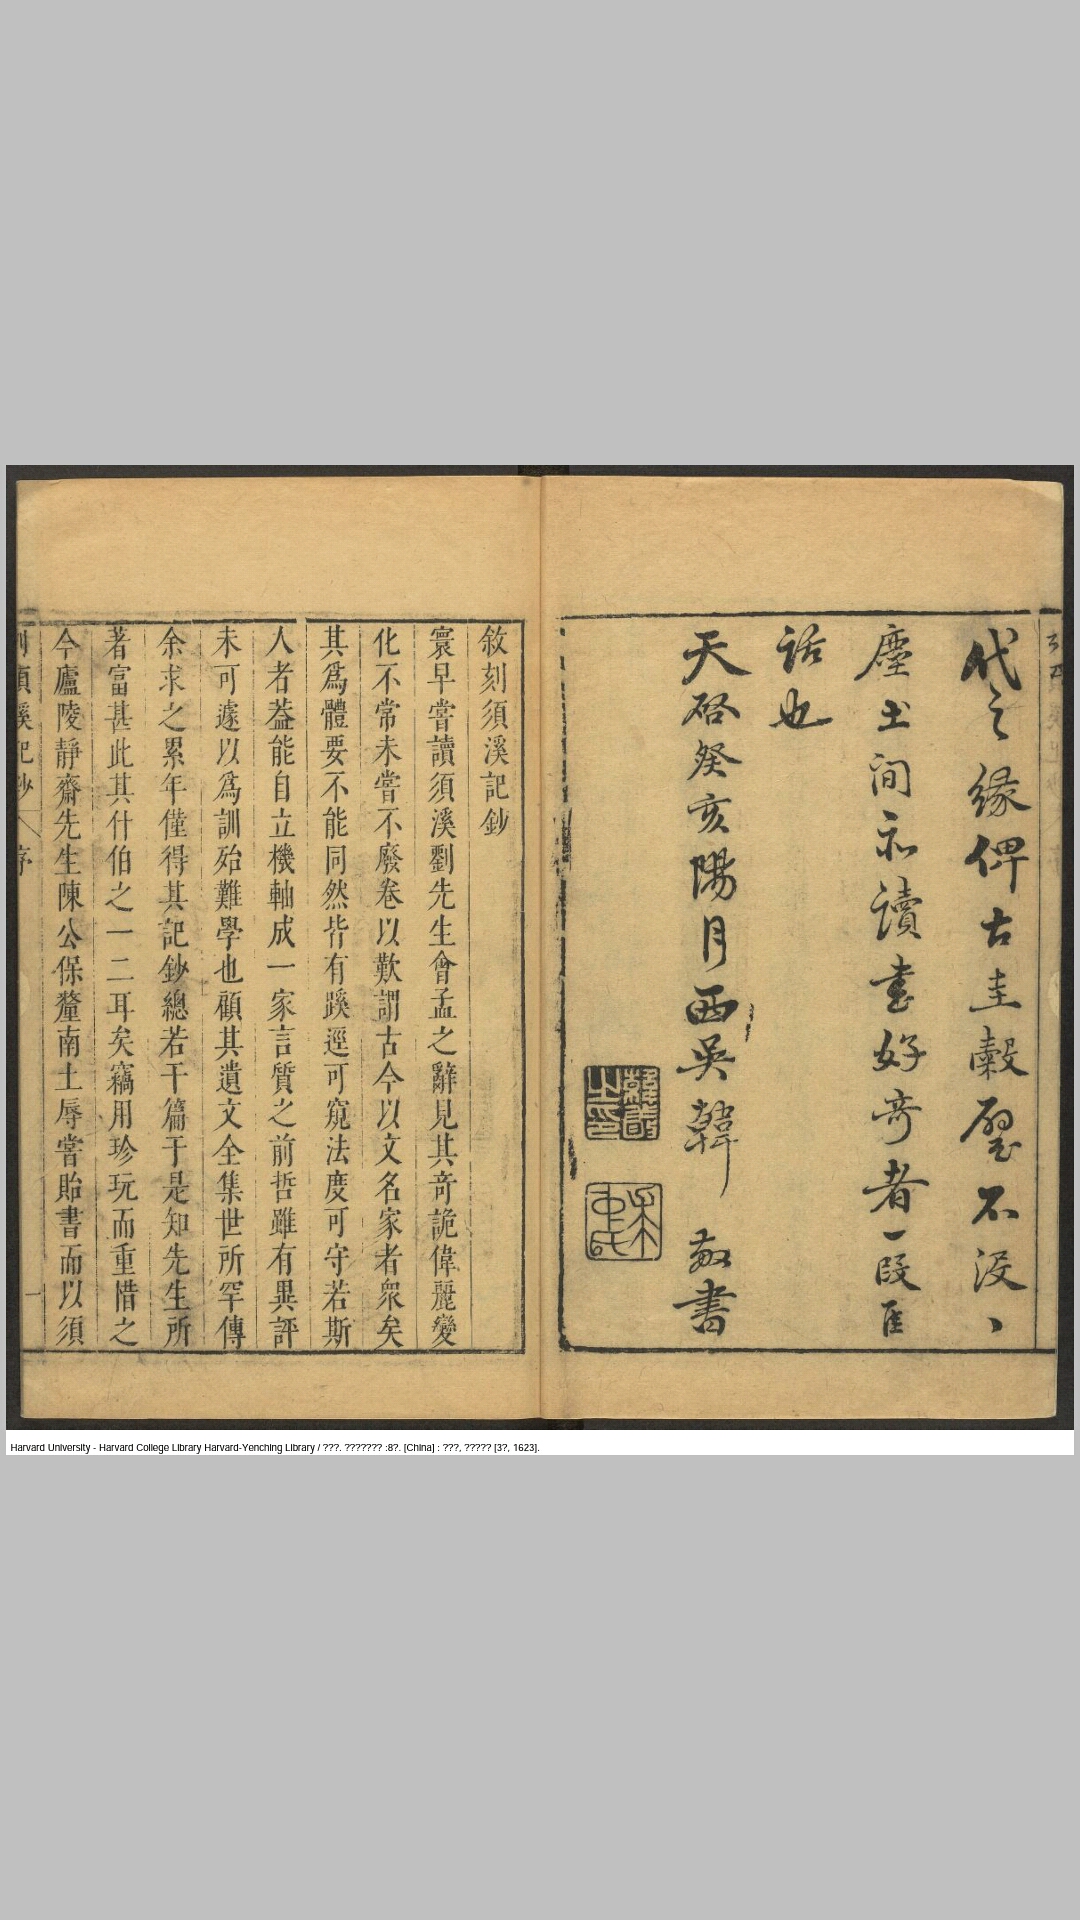 代之緣俾古圭穀璧不沒、
塵土間亦讀書好奇者一段佳
話也
天啓癸亥陽月西吳韓 敬書
敘刻須溪記鈔
寰早嘗讀須溪劉先生會孟之辭見其奇詭偉麗變
化不常未嘗不廢卷以歎謂古今以文名家者衆矣
其爲體要不能同然皆有蹊逕可窺法度可守若斯
人者葢能自立機軸成一家言質之前哲雖有異評
未可遽以爲訓殆難學也顧其遺文全集世所罕傳
余求之累年僅得其記鈔總若干篇于是知先生所
著富甚此其什伯之一二耳矣竊用珍玩而重惜之
今廬陵靜齋先生陳公保釐南土辱嘗貽書而以須
劉須溪記鈔 序 一
Harvard University - Harvard College Library Harvard-Yenching Library / ???. ??????? :8?. [China] : ???, ????? [3?, 1623].